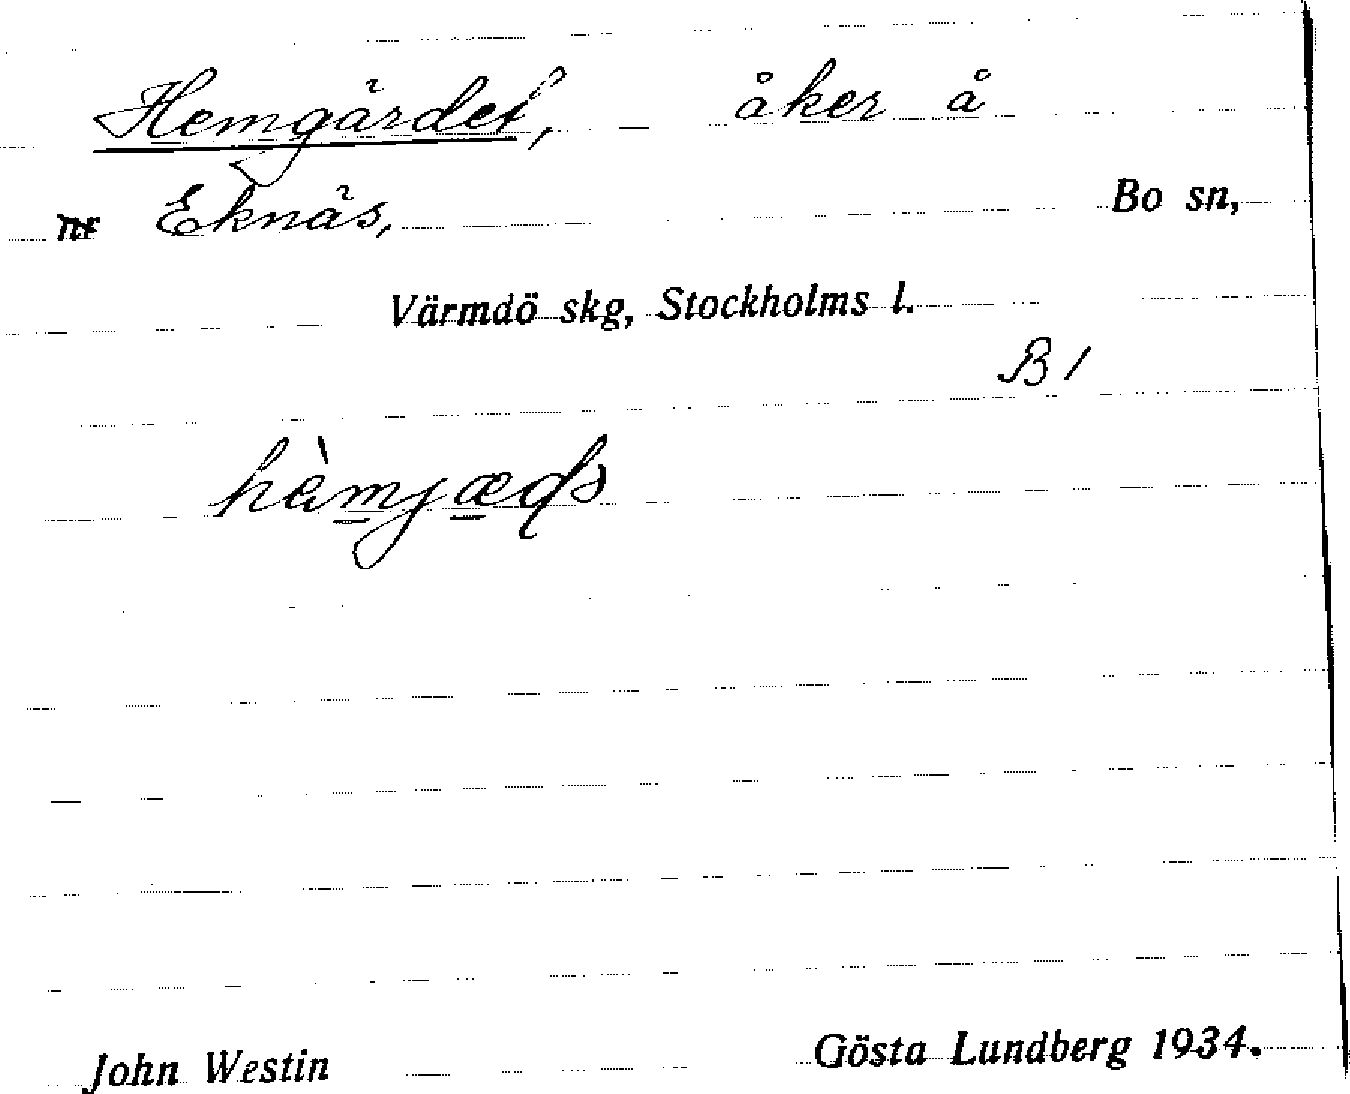 Hemgärdet, åker å
nr Eknäs, Bo sn,
Värmdö skg, Stockholms l.
B 1
John Westin Gösta Lundberg 1934.